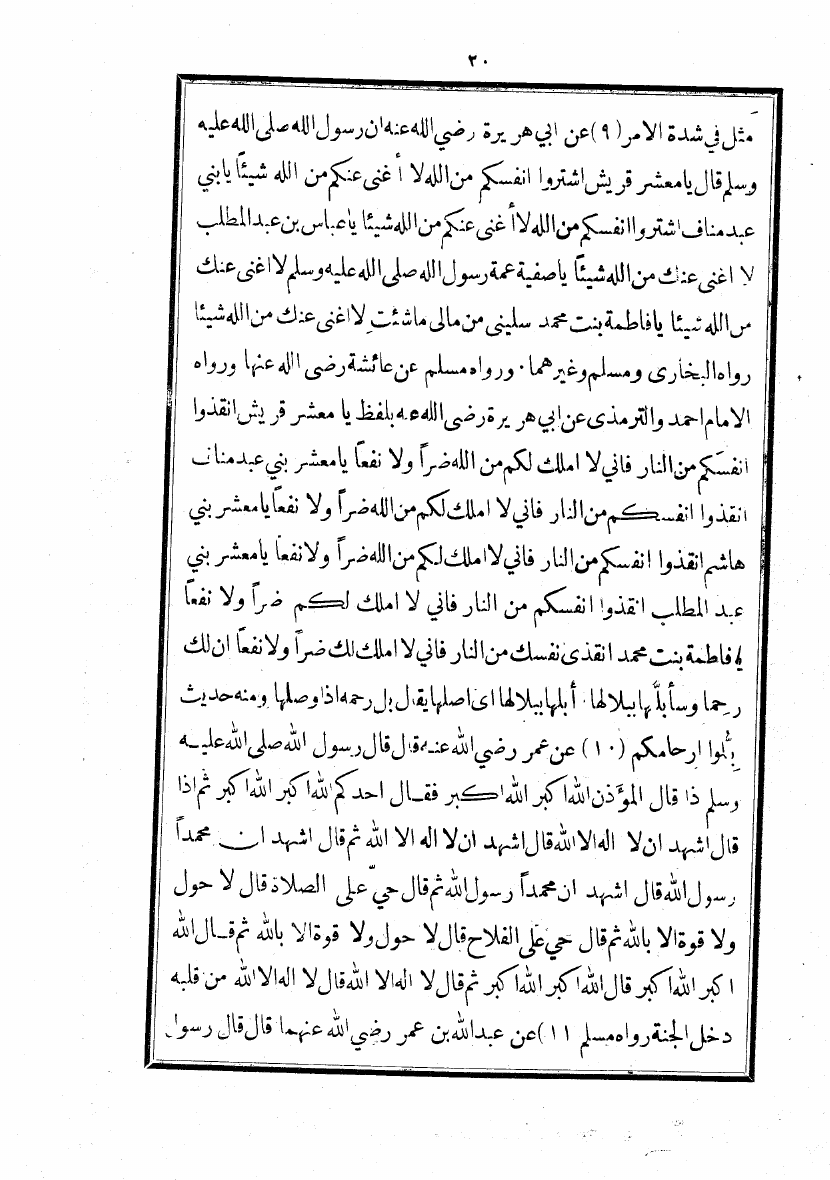 ٢٠
مثل في شدة الامر (٩) عن ابي هريرة رضي الله عنه ان رسول الله صلى الله عليه
وسلم قال يا معشر قريش اشتروا انفسكم من الله لا أغنى عنكم من الله شيئاً يا بني
عبد مناف اشتروا انفسكم من الله لا أغنى عنكم من الله شيئا يا عباس بن عبد المطلب
لا اغنى عنك من الله شيئاً يا صفية عمة رسول الله صلى الله عليه وسلم لا اغنى عنك
من الله شيئا يا فاطمة بنت محمد سليني من مالى ما شئت لا اغنى عنك من الله شيئا
رواه البخارى ومسلم وغيرهما . ورواه مسلم عن عائشة رضى الله عنها ورواه
الامام احمد والترمذى عن ابي هريرة رضى الله عنه بلفظ يا معشر قريش انقذوا
انفسكم من النار فاني لا املك لكم من الله ضراً ولا نفعاً يا معشر بني عبد مناف
انقذوا انفسكم من النار فاني لا املك لكم من الله ضراً ولا نفعاً يا معشر بني
هاشم انقذوا انفسكم من النار فاني لا املك لكم من الله ضراً ولا نفعاً يا معشر بني
عبد المطلب انقذوا انفسكم من النار فاني لا املك لكم ضراً ولا نفعاً
يا فاطمة بنت محمد انقذى نفسك من النار فاني لا املك لك ضراً ولا نفعاً ان لك
رحما وسأبلُّها ببلالها . أبلها ببلالها اى اصلها يقال بل رحمه اذا وصلها ومنه حديث
بُلُّوا ارحامكم (١٠) عن عمر رضي الله عنه قال قال رسول الله صلى الله عليه
وسلم ذا قال المؤذن الله اكبر الله اكبر فقال احدكم الله اكبر الله اكبر ثم اذا
قال اشهد ان لا اله الا الله قال اشهد ان لا اله الا الله ثم قال اشهد ان محمداً
رسول الله قال اشهد ان محمداً رسول الله ثم قال حيّ على الصلاة قال لا حول
ولا قوة الا بالله ثم قال حي على الفلاح قال لا حول ولا قوة الا بالله ثم قال الله
اكبر الله اكبر قال الله اكبر الله اكبر ثم قال لا اله الا الله قال لا اله الا الله من قلبه
دخل الجنة رواه مسلم ١١) عن عبد الله بن عمر رضي الله عنهما قال قال رسول